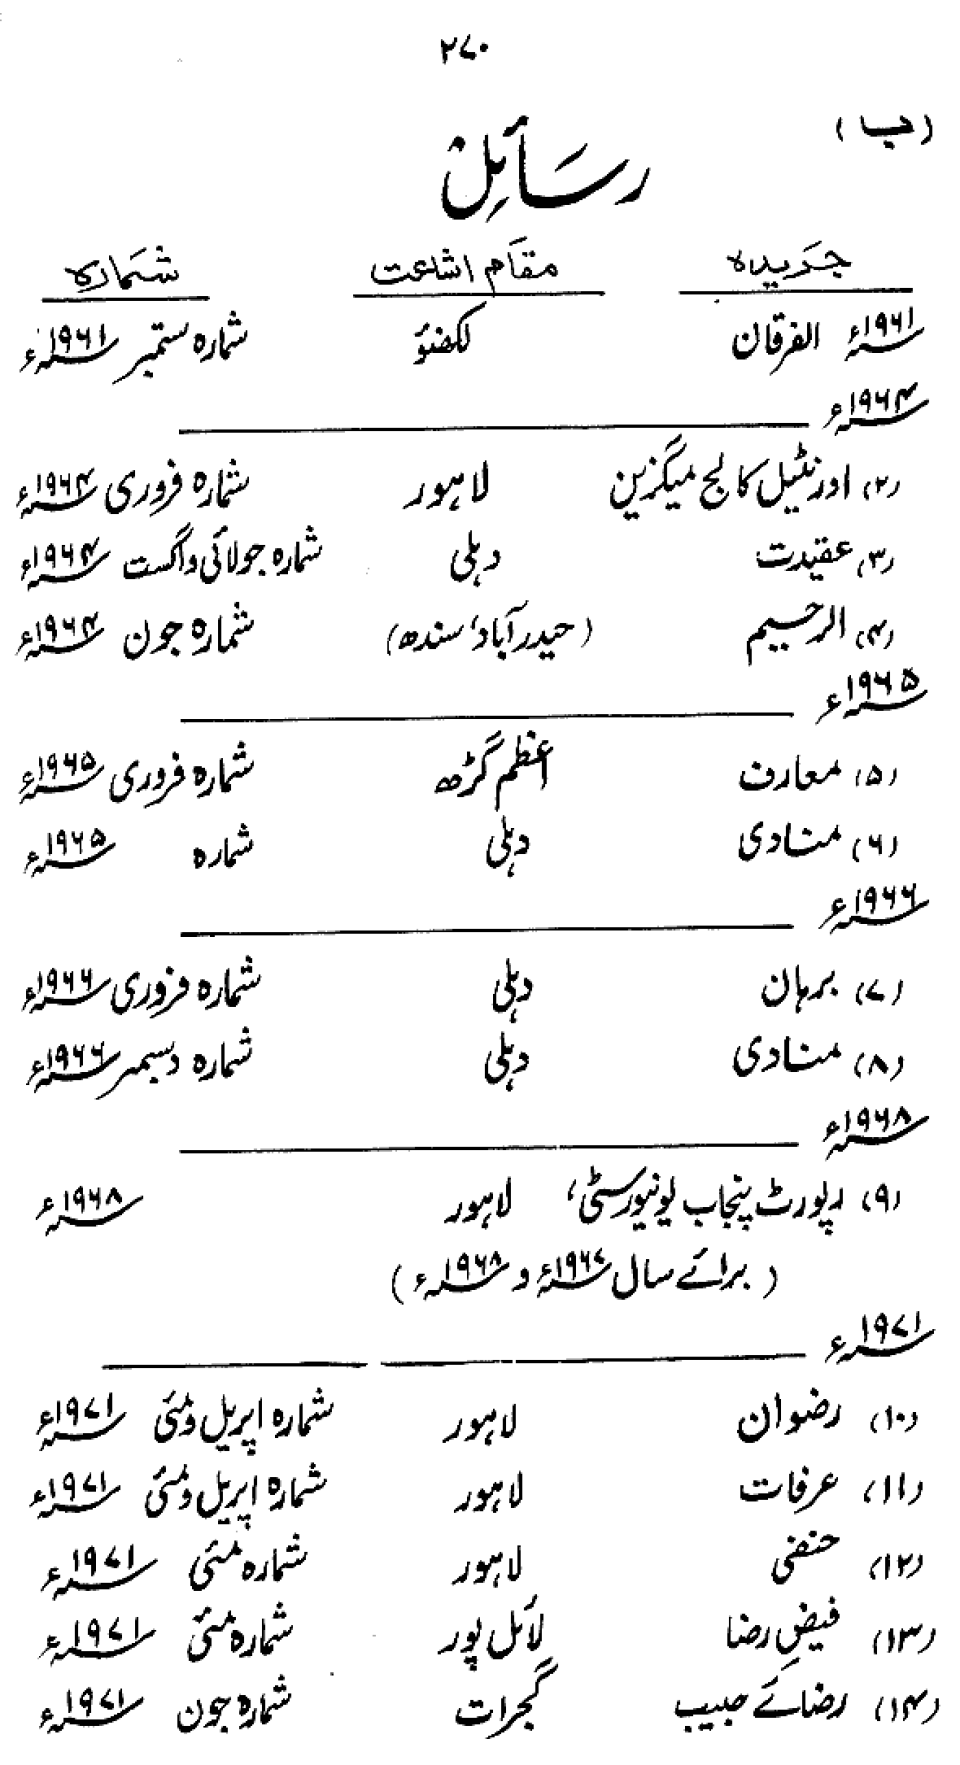 ۲۷۰
(ب)
رسائل
جریدہ مقام اشاعت شمارہ
۱۹۶۱ء الفرقان لکھنؤ شمارہ ستمبر ۱۹۶۱ء
۱۹۶۴ء
(۲) اورنٹیل کالج میگزین لاہور شمارہ فروری ۱۹۶۴ء
(۳) عقیدت دہلی شمارہ جولائی و اگست ۱۹۶۴ء
(۴) الرحیم (حیدرآباد، سندھ) شمارہ جون ۱۹۶۴ء
۱۹۶۵ء
(۵) معارف اعظم گڑھ شمارہ فروری ۱۹۶۵ء
(۶) منادی دہلی شمارہ ۱۹۶۵ء
۱۹۶۶ء
(۷) برہان دہلی شمارہ فروری ۱۹۶۶ء
(۸) منادی دہلی شمارہ دسمبر ۱۹۶۶ء
۱۹۶۸ء
(۹) رپورٹ پنجاب یونیورسٹی، لاہور ۱۹۶۸ء
(برائے سال ۱۹۶۷ء و ۱۹۶۸ء)
۱۹۷۱ء
(۱۰) رضوان لاہور شمارہ اپریل و مئی ۱۹۷۱ء
(۱۱) عرفات لاہور شمارہ اپریل و مئی ۱۹۷۱ء
(۱۲) حنفی لاہور شمارہ مئی ۱۹۷۱ء
(۱۳) فیضِ رضا لائل پور شمارہ مئی ۱۹۷۱ء
(۱۴) رضائے حبیب گجرات شمارہ جون ۱۹۷۱ء